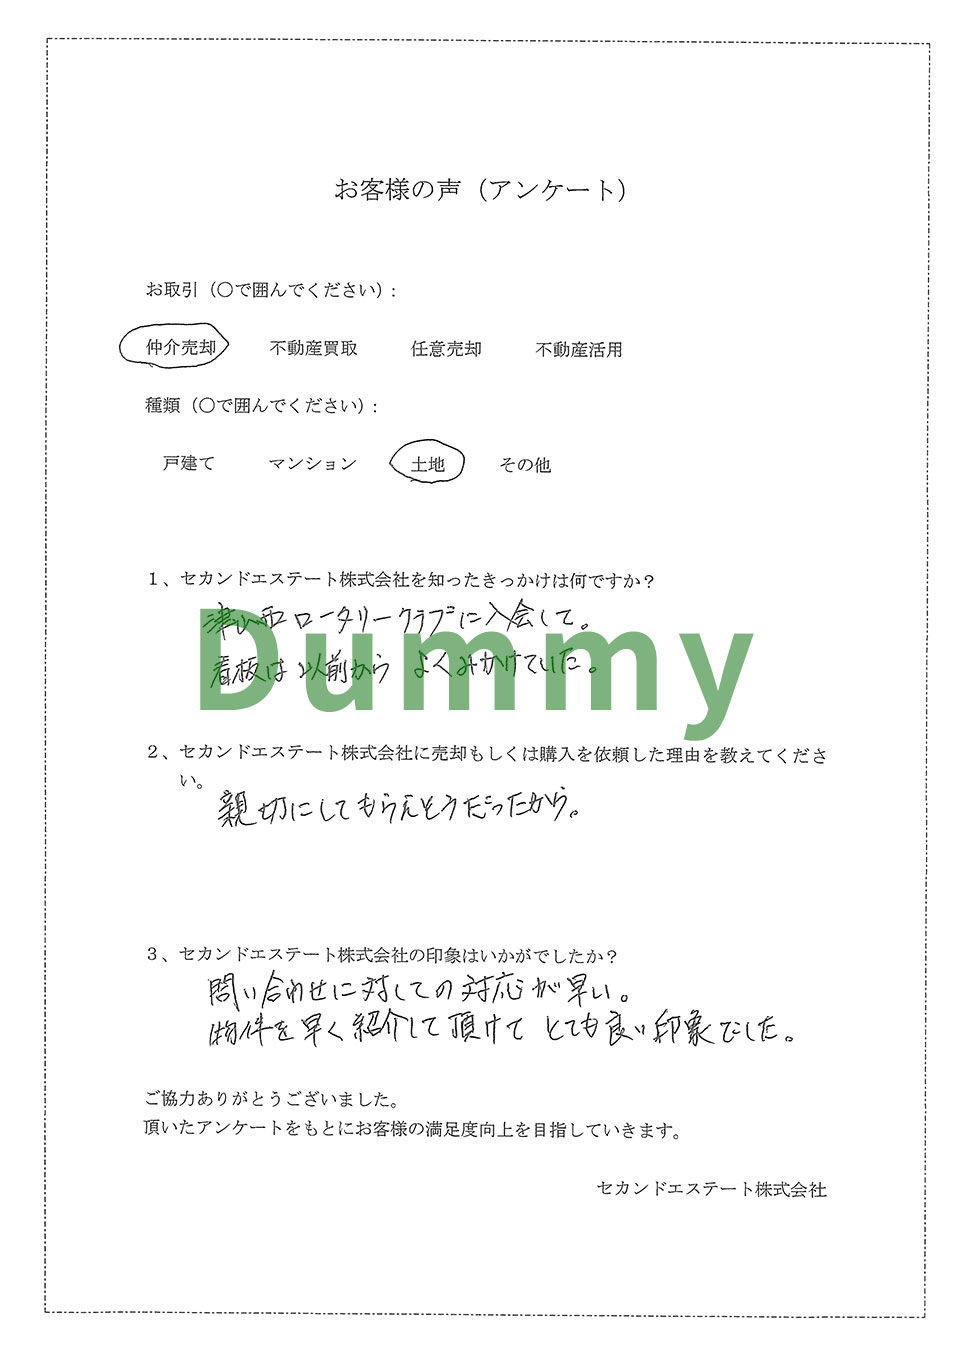 お客様の声（アンケート）
お取引（〇で囲んでください）:
仲介売却 不動産買取 任意売却 不動産活用
種類（〇で囲んでください）:
戸建て マンション 土地 その他
１、セカンドエステート株式会社を知ったきっかけは何ですか？
ロータリークラブに入会して。
看板は以前から よくみかけていた。
Dummy
２、セカンドエステート株式会社に売却もしくは購入を依頼した理由を教えてくださ
い。
親切にしてもらえそうだったから。
３、セカンドエステート株式会社の印象はいかがでしたか？
問い合わせに対しての対応が早い。
物件を早く紹介して頂けて とても良い印象でした。
ご協力ありがとうございました。
頂いたアンケートをもとにお客様の満足度向上を目指していきます。
セカンドエステート株式会社